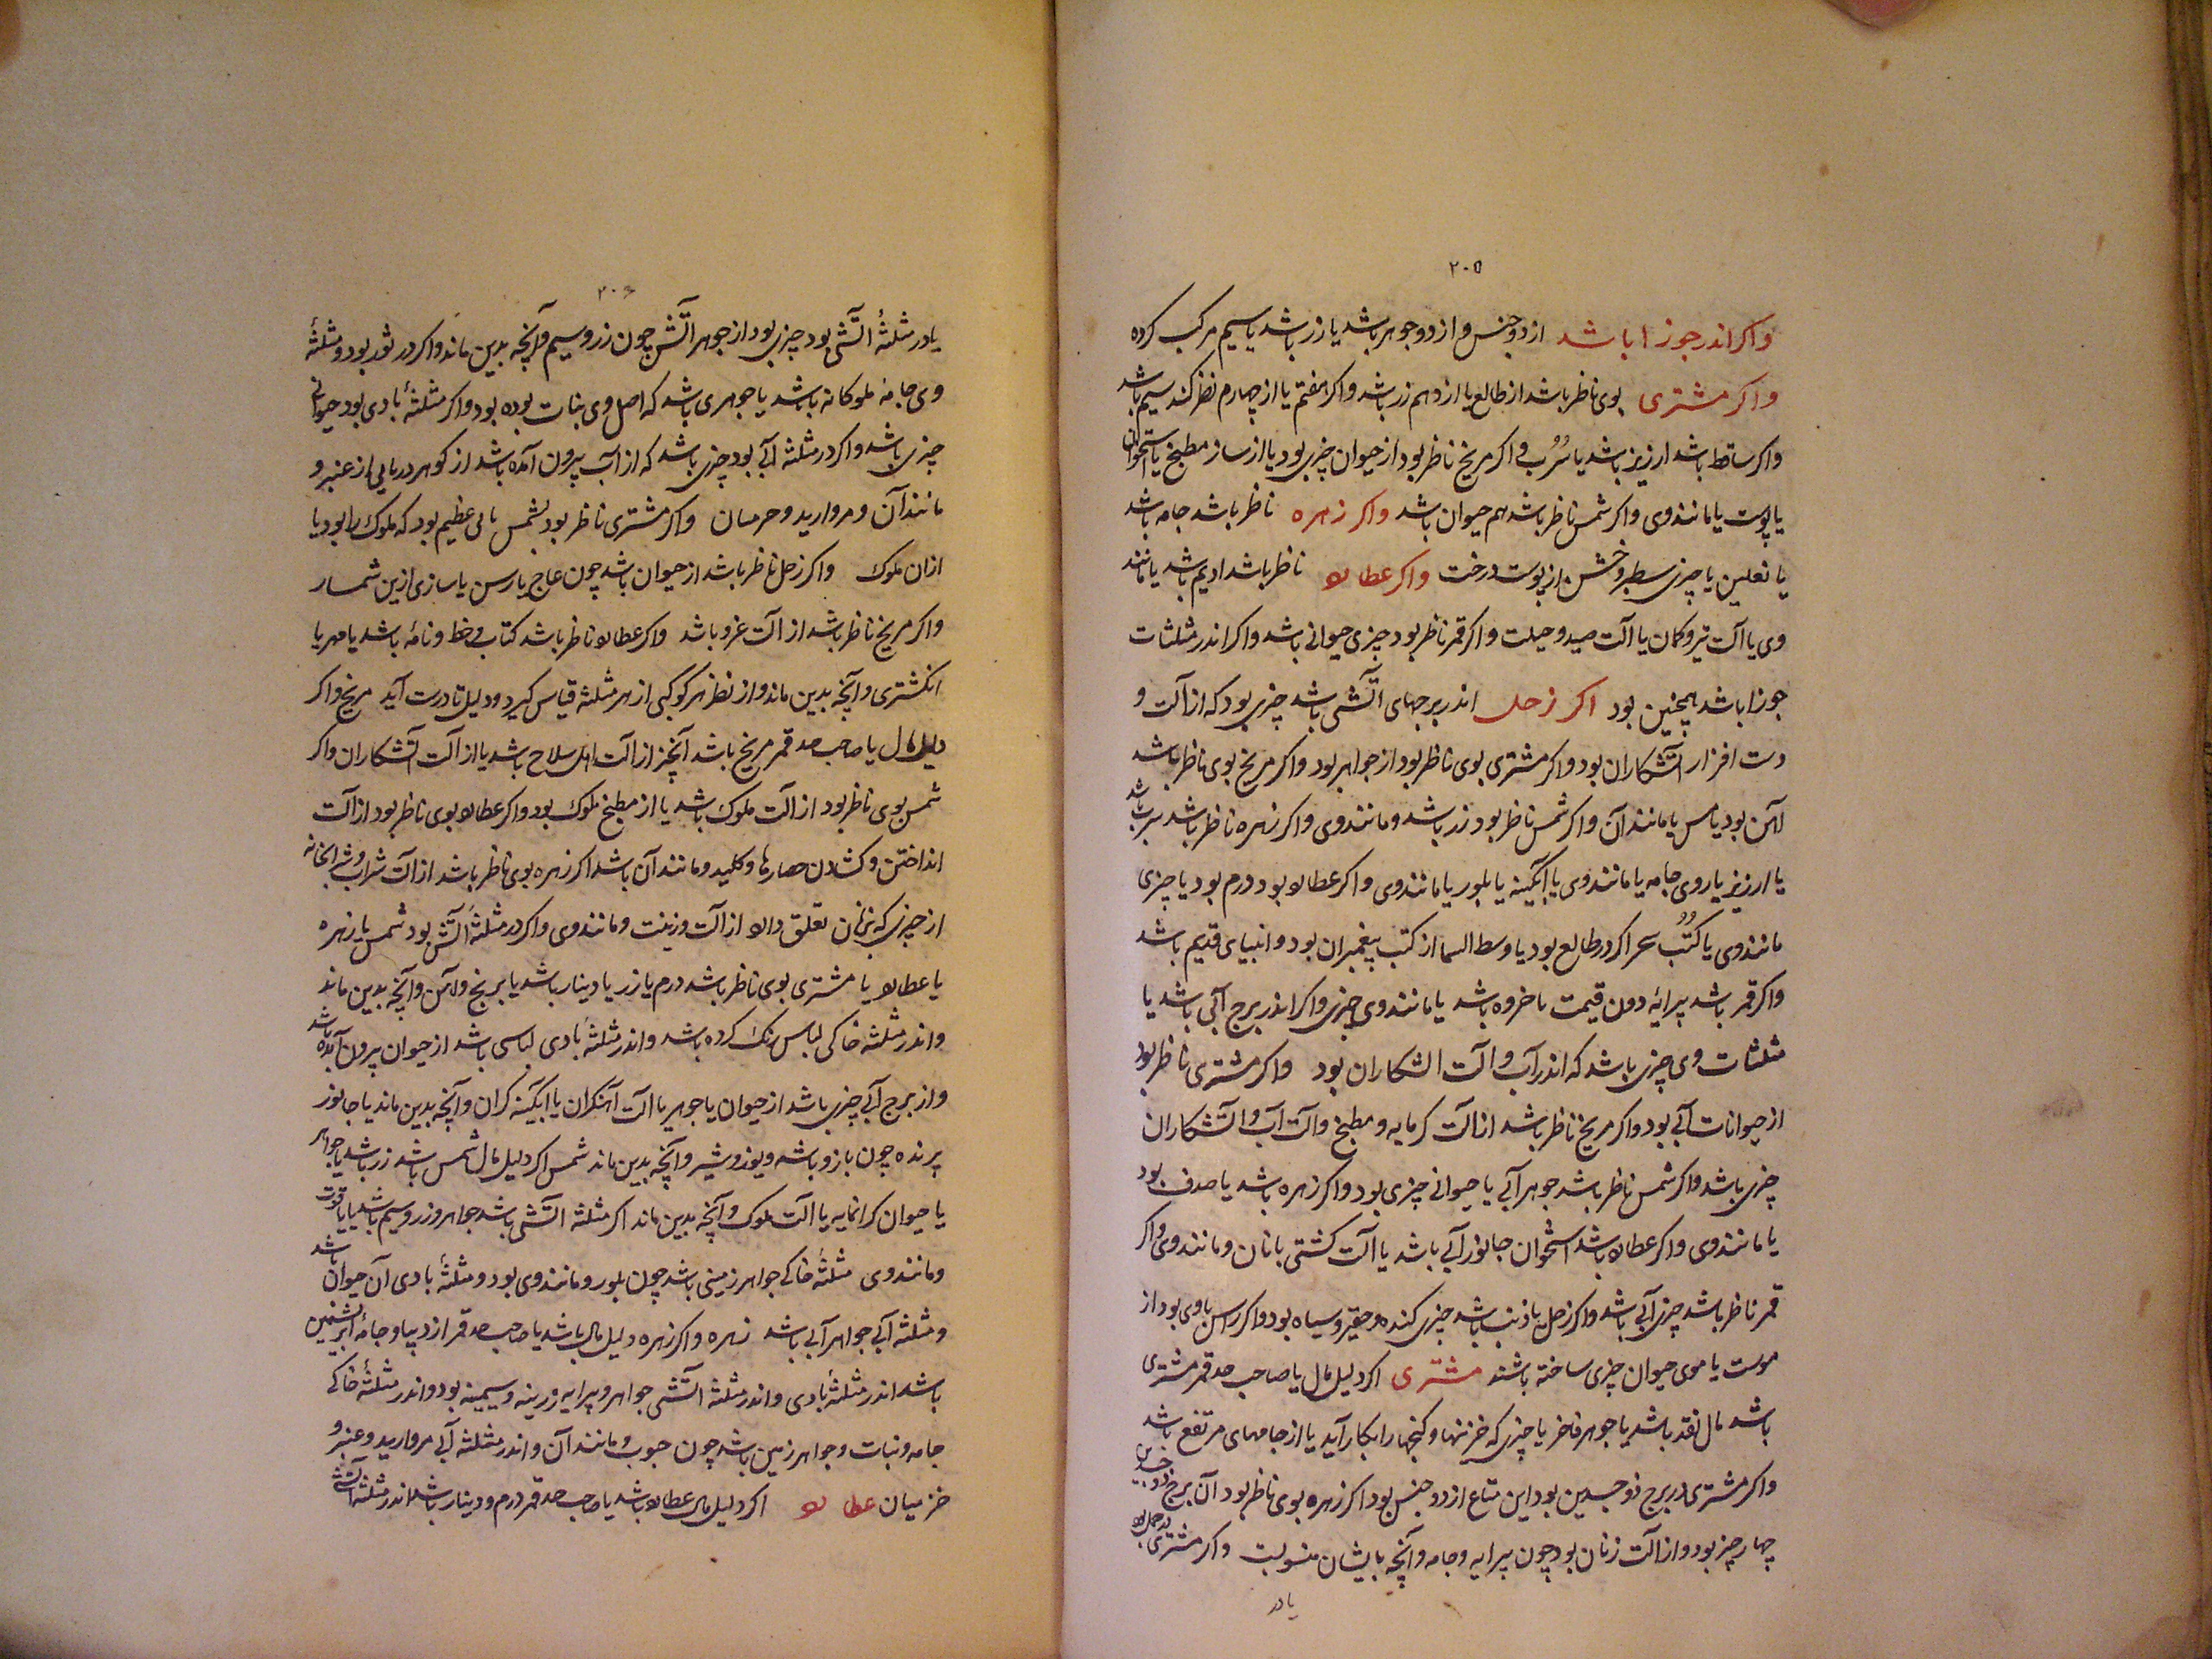 ۲۰۵
واکر اندر جوزا باشد از دو جنس و از دو جوهر باشد یا زر باشد یا سیم مرکب کرده
واکر مشتری بوی ناظر باشد از طالع یا از دهم زر باشد واکر بهفتم یا از چهارم نظر کند سیم باشد
واکر ساقط باشد ارزیز باشد یا سُرُب واکر مریخ ناظر بود از حیوان چیزی بود یا از ساز مطبخ یا استخوان
یا پوست یا مانند وی واکر شمس ناظر باشد هم حیوان باشد واکر زهره ناظر باشد جامه باشد
یا نعلین یا چیزی سطبر و خشن از پوست درخت واکر عطارد ناظر باشد ادیم باشد یا مانند
وی یا آلت تیر و کمان یا آلت صید و حیلت واکر قمر ناظر بود چیزی حیوانی باشد واکر اندر مثلثات
جوزا باشد همچنین بود اکر زحل اندر برجهای آتشی باشد چیزی بود که از آلت و
دست افزار آتشکاران بود واکر مشتری بوی ناظر بود از جواهر بود واکر مریخ بوی ناظر باشد
آهن بود یا مس یا مانند آن واکر شمس ناظر بود زر باشد و مانند وی واکر زهره ناظر باشد سرب باشد
یا ارزیز یا روی جامه یا مانند وی یا آبکینه یا بلور یا مانند وی واکر عطارد بود درم بود یا چیزی
مانند وی یا کُتُب سحر اکر در طالع بود یا وسط السما از کتب پیغمبران بود و انبیای قدیم باشد
واکر قمر باشد پیرایهٔ دون قیمت یا خروه باشد یا مانند وی چیزی واکر اندر برج آبی باشد یا
مثلثات وی چیزی باشد که اندر آب و آلت آتشکاران بود واکر مشتری ناظر بود
از حیوانات آبی بود واکر مریخ ناظر باشد از آلت کرمابه و مطبخ و آلت آب و آتشکاران
چیزی باشد واکر شمس ناظر باشد جوهر آبی یا حیوانی چیزی بود واکر زهره باشد یا صدف بود
یا مانند وی واکر عطارد باشد استخوان جانور آبی باشد یا آلت کشتی بانان و مانند وی واکر
قمر ناظر باشد چیزی آبی باشد واکر زحل با ذنب باشد چیزی کنده و حقیر و سیاه بود واکر راس باوی بود از
پوست یا موی حیوان چیزی ساخته باشند مشتری اکر دلیل مال یا صاحب حد قمر مشتری
باشد مال نقد باشد یا جوهر فاخر یا چیزی که خزینها و کنجها را بکار آید یا از جامهای مرتفع باشد
واکر مشتری در برج ذو جسدین بود این متاع از دو جنس بود اکر زهره بوی ناظر بود آن برج ذو جسدین
چهار چیز بود و از آلت زنان بود چون پیرایه و جامه و آنچه بایشان منسوبست واکر مشتری در حمل بود
یا در
۲۰۶
یا در مثلثهٔ آتشی بود چیزی بود از جوهر آتش چون زر و سیم و آنچه بدین ماند واکر در ثور بود و مثلثهٔ
وی جامه ملوکانه باشد یا جوهری باشد که اصل وی نبات بوده بود واکر مثلثهٔ بادی بود حیوانی
چیزی باشد واکر در مثلثه آبی بود چیزی باشد که از آب بیرون آمده باشد از کوهر دریایی از عنبر و
مانند آن و مروارید و واکر مشتری ناظر بود بشمس مالی عظیم بود که ملوک را بود یا
ازان ملوک واکر زحل ناظر باشد از حیوان باشد چون عاج یا رسن یا سازی ازین شمار
واکر مریخ ناظر باشد از آلت غزو باشد واکر عطارد ناظر باشد کتاب و خط و نامهٔ باشد یا مهر یا
انکشتری و آنچه بدین ماند و از نظر هر کوکبی از هر مثلثه قیاس کیرد و دلیل تا درست آید مریخ واکر
دلیل مال یا صاحب حد قمر مریخ باشد آنچیز از آلت اهل سلاح باشد یا از آلت آتشکاران واکر
شمس بوی ناظر بود از آلت ملوک باشد یا از مطبخ ملوک بود واکر عطارد بوی ناظر بود از آلت
انداختن و کشادن حصارها و کلید و مانند آن باشد اکر زهره بوی ناظر باشد از آلت شراب و شرابخانه
از چیزی که بزنان تعلق دارد از آلت و زینت و مانند وی واکر در مثلثهٔ آتش بود شمس یا زهره
یا عطارد یا مشتری بوی ناظر باشد درم یا زر یا دینار باشد یا برنج و آهن و آنچه بدین ماند
و اندر مثلثه خاکی لباس رنک کرده باشد و اندر مثلثهٔ بادی لباسی باشد از حیوان بیرون آمده باشد
و از برج آبی چیزی باشد از حیوان یا جوهر یا آلت آهنکران یا آبکینه کران و آنچه بدین ماند یا جانور
پرنده چون باز و باشه و یوز و شیر و آنچه بدین ماند شمس اکر دلیل مال شمس باشد زر باشد یا جواهر
یا حیوان کرانمایه یا آلت ملوک و آنچه بدین ماند اکر مثلثه آتشی باشد جواهر و زر و سیم باشد یا یاقوت
و مانند وی مثلثهٔ خاکی جواهر زمینی باشد چون بلور و مانند وی بود و مثلثهٔ بادی آن حیوان باشد
و مثلثه آبی جواهر آبی باشد زهره واکر زهره دلیل مال باشد یا صاحب حد قمر از دیبا و جامهٔ ابریشمین
باشد اندر مثلثهٔ بادی و اندر مثلثه آتشی جواهر و پیرایه زرینه و سیمینه بود و اندر مثلثهٔ خاکی
جامه و نبات و جواهر زمین باشد چون حبوب و مانند آن و اندر مثلثه آبی مروارید و عنبر و
خزمیان عطارد اکر دلیل مال عطارد باشد یا صاحب حد قمر درم و دینار باشد اندر مثلثه آتشی